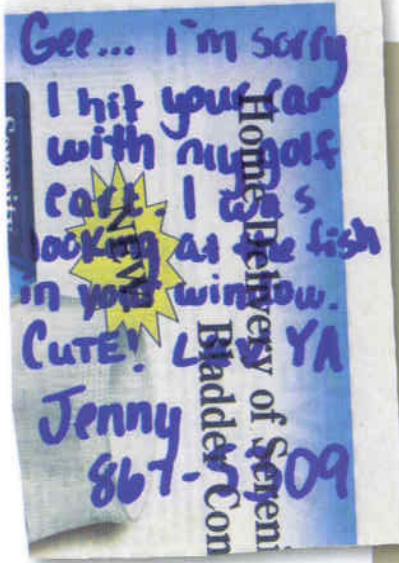 Gee... I'm sorry
I hit your car
with my golf
cart. I was
looking at the fish
in your window.
CUTE! Luv YA
Jenny
867-5309
Serenity
NEW
Home Delivery of Sereni
Bladder Con